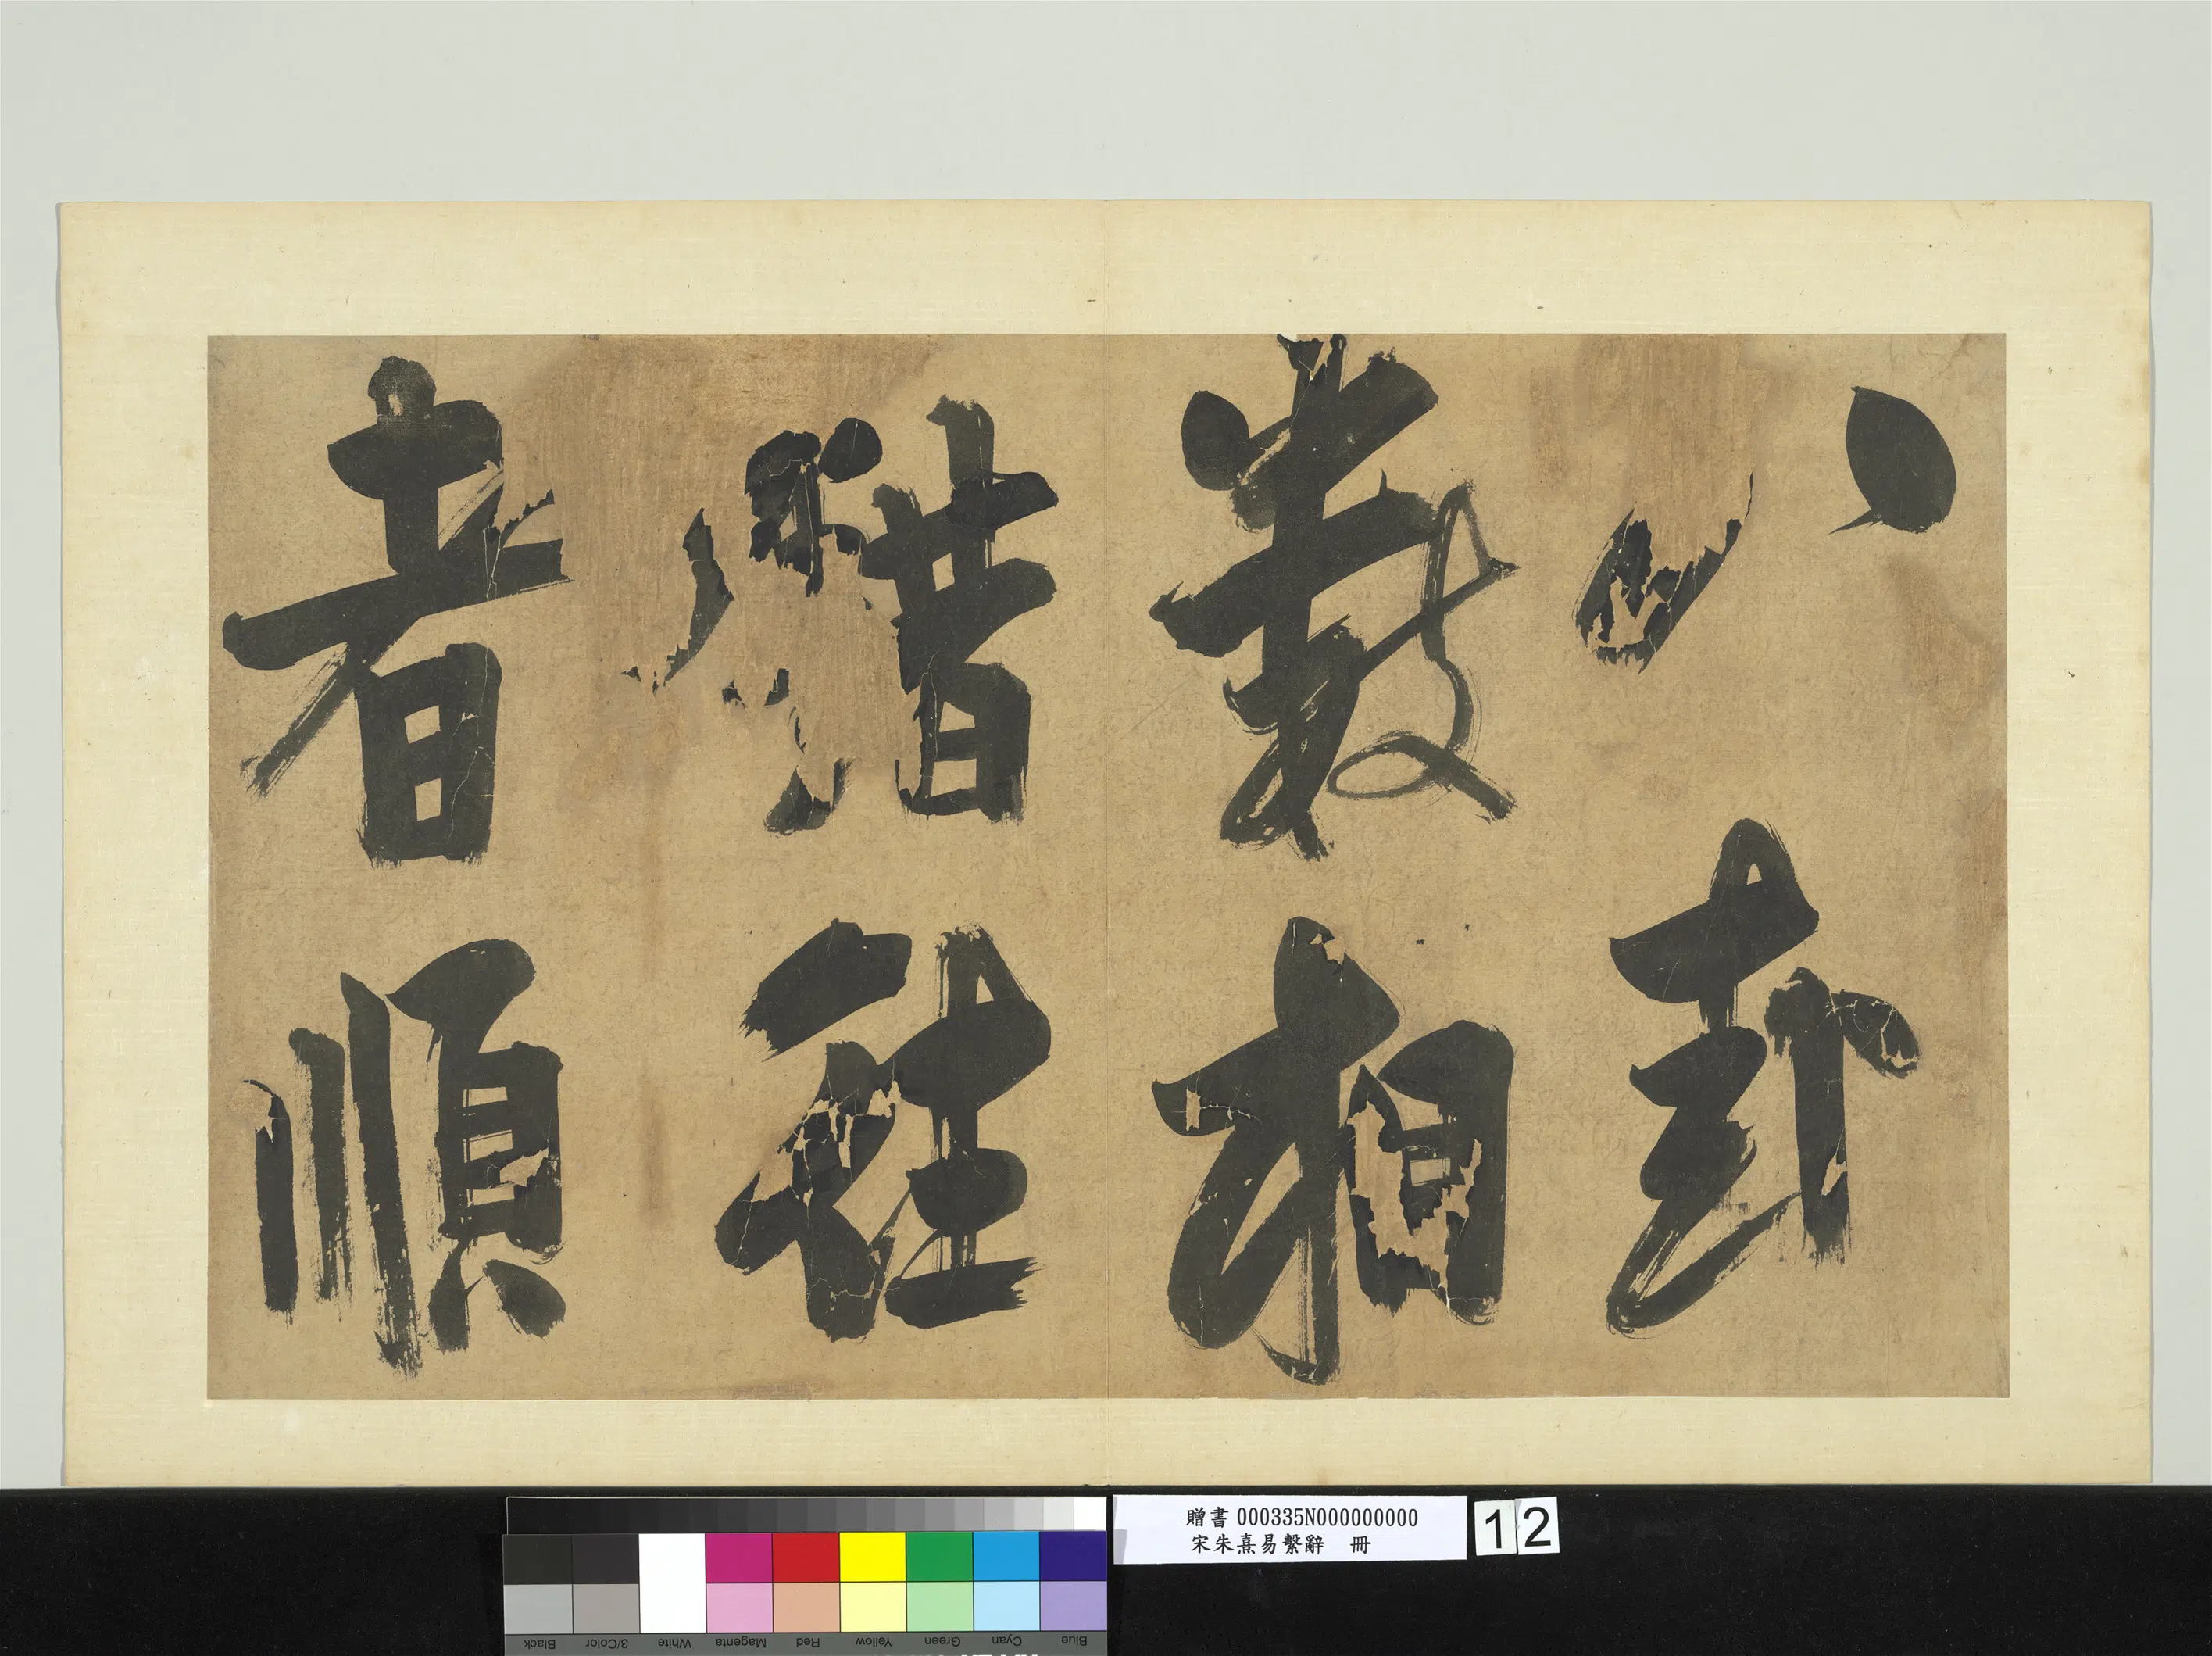 八卦
數相
錯往
者順
贈書 000335N000000000
宋朱熹易繫辭 冊
12
Blue Cyan Green Yellow Red Magenta White 3/Color Black